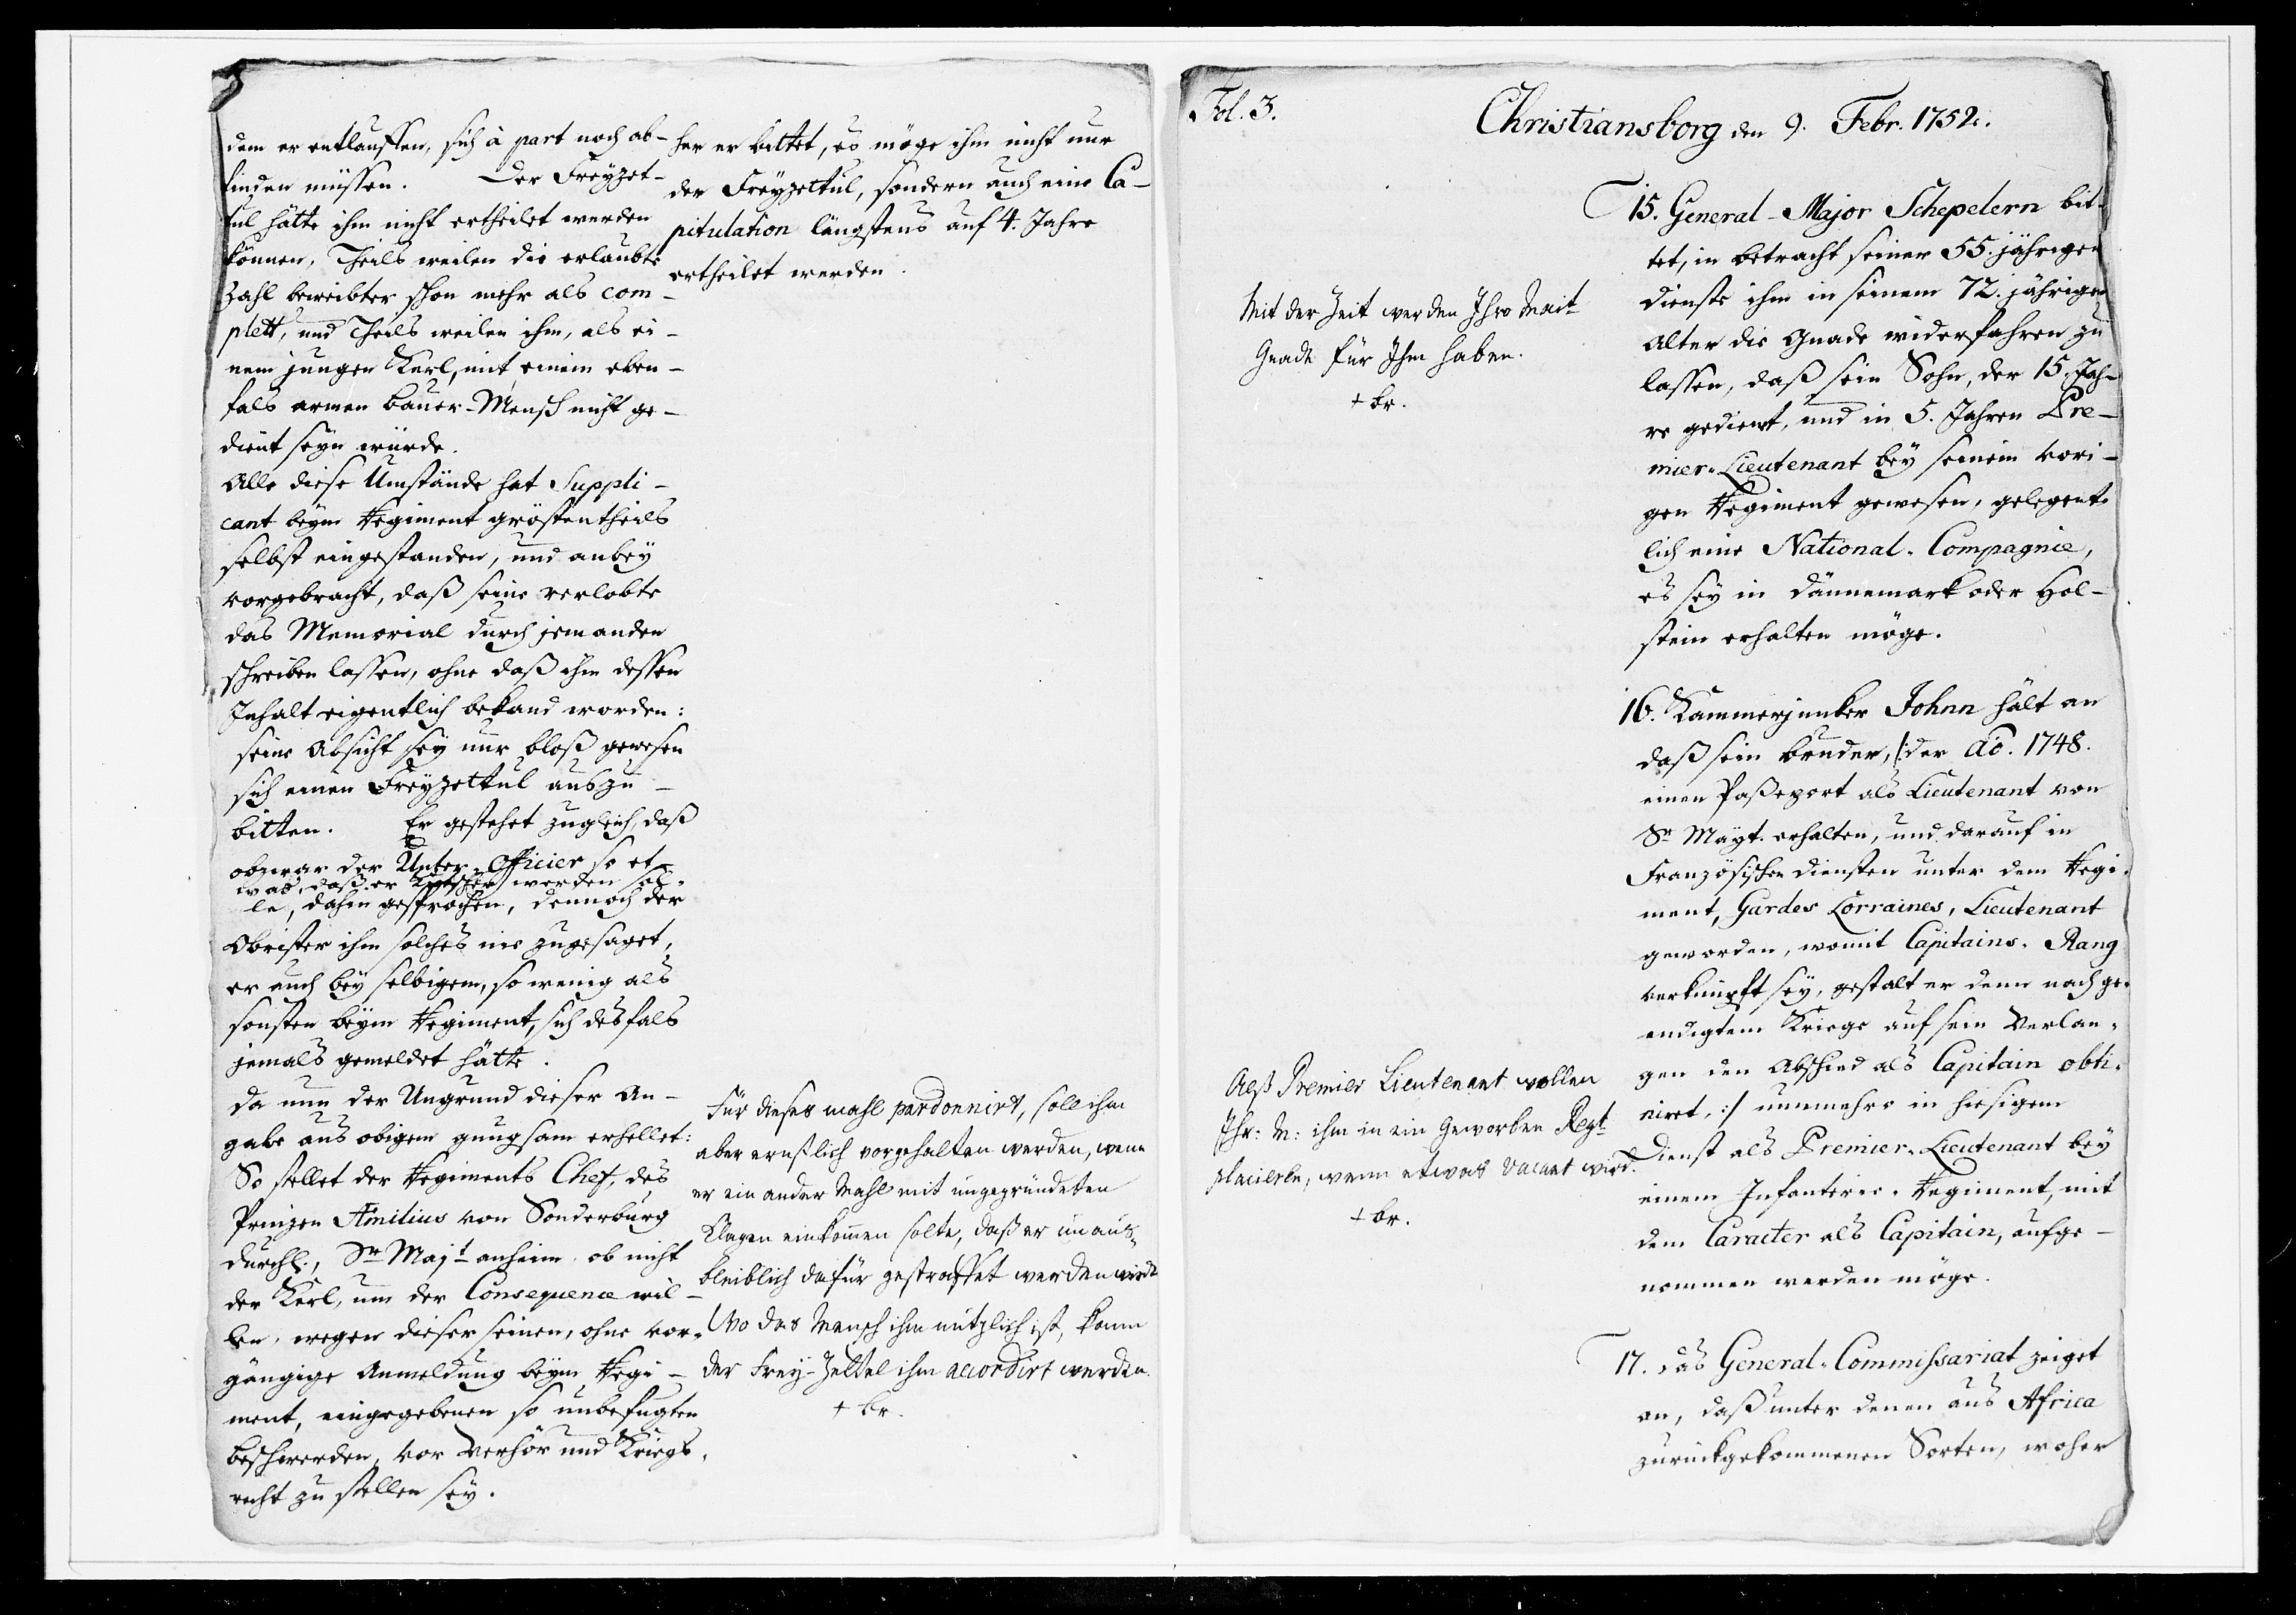 dem er entlauffen, sich à part noch ab-
finden müssen. Der Freyzet-
tul hätte ihm nicht ertheilet werden
können, Theils weilen die erlaubte
Zahl beweibter schon mehr als com-
plett, und Theils weilen ihm, als ei-
nem jungen Kerl, mit einem eben-
fals armen Bauer-Mensch nicht ge-
dient seyn würde.
Alle diese Umstände hat Suppli-
cant beym Regiment gröstentheils
selbst eingestanden, und anbey
vorgebracht, daß seine verlobte
das Memorial durch jemanden
schreiben lassen, ohne daß ihm dessen
Inhalt eigentlich bekand worden:
seine Absicht sey nur bloß gewesen
sich einen Freyzettul auszu-
bitten. Er gestehet zugleich, daß
obzwar der Unter-Officier so et-
was, daß er werden sol-
le, dahin gesprochen, dennoch der
Obrister ihm solches nie zugesaget,
er auch bey selbigem, so wenig als
sonsten beym Regiment, sich desfals
jemals gemeldet hätte.
Da nun der Ungrund dieser An-
gabe aus obigem gnugsam erhellet:
So stellet der Regiments Chef, des
Prinzen Æmilius von Sonderburg
Durchl., Sr Majt anheim ob nicht
der Kerl, um der Consequence wil-
len, wegen dieser seinen, ohne vor-
gängige Anmeldung beym Regi-
ment, eingegebenen so unbefugten
beschwerden, vor Verhör und Kriegs-
recht zu stellen sey.
her er bittet, es möge ihm nicht nur
der Freyzettul, sondern auch eine Ca-
pitulation längstens auf 4. Jahre
ertheilet werden.
Für dieses mahl pardonnirt, soll ihm
aber ernstlich vorgehalten werden, wenn
er ein ander Mahl mit ungegründeten
Klagen einkomen solte, daß er unaus-
bleiblich dafür gestraffet werden wirdt
Wo das Mensch ihm nützlich ist, kann
der Frey-Zettel ihm accordirt werden.
+ br.
Fol. 3.
Christiansborg den 9. Febr. 1752.
15. General-Major Schepelern bit-
tet, in betracht seiner 55. jährigen
dienste ihm in seinem 72. jährigen
Alter die Gnade widerfahren zu
lassen, daß sein Sohn, der 15. Jah-
re gedient, und in 5. Jahren Pre-
mier-Lieutenant bey seinem vori-
gen Regiment gewesen, gelegent-
lich eine National-Compagnie,
es sey in Dännemark oder Hol-
stein erhalten möge.
Mit der Zeit werden Ihro Mait
Gnade für Ihm haben.
+ br.
16. Kammerjunker Johnn hält an
daß sein Bruder, /: der Ao. 1748.
einen Paßeport als Lieutenant von
Sr Mayt. erhalten, und darauf in
Französischen diensten unter dem Regi-
ment, Gardes Lorraines, Lieutenant
geworden, womit Capitains-Rang
verknüpft sey, gestalt er denn nach ge-
endigtem Kriege auf sein Verlan-
gen den Abschied als Capitain obti-
niret, :/ nunmehro in hiesigem
Dienst als Premier-Lieutenant bey
einem Infanterie-Regiment, mit
dem Caracter als Capitain, aufge-
nommen werden möge.
Alß Premier Lieutenant wollen
Ihr: M: ihm in ein Geworben Regt
placieren, wenn etwas vacant wird.
+ br.
17. Das General-Commissariat zeiget
an, daß unter denen aus Africa
zurückgekommenen Sorten, woher